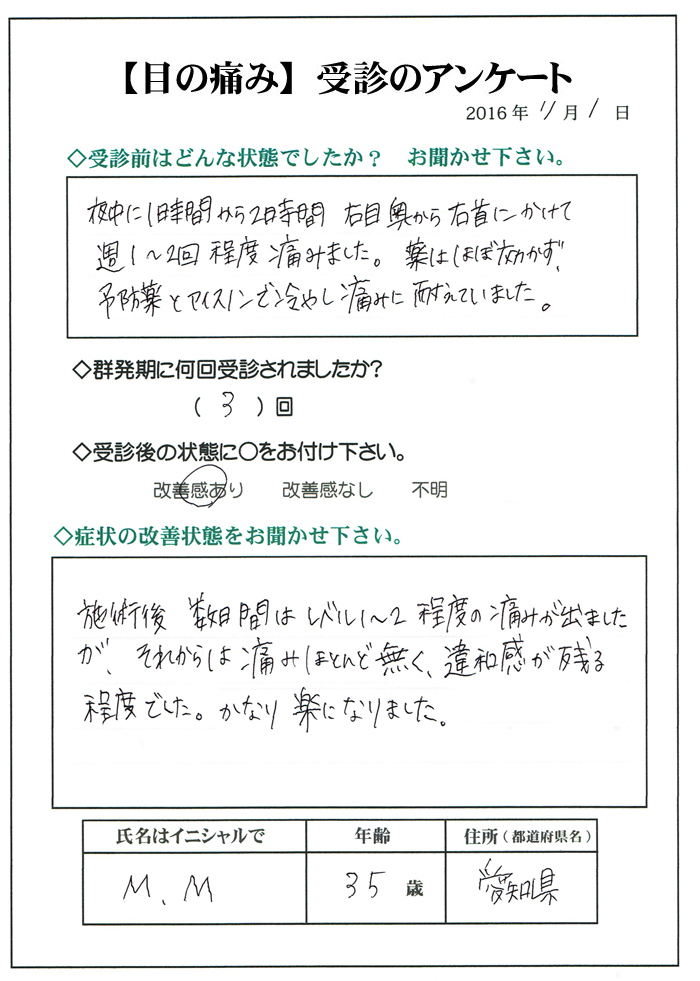 【目の痛み】受診のアンケート
2016年 11月 1日
◇受診前はどんな状態でしたか？　お聞かせ下さい。
夜中に1時間から2時間 右目奥から右首にかけて
週1〜2回 程度 痛みました。薬はほぼ効かず、
予防薬とアイスノンで冷やし痛みに耐えていました。
◇群発期に何回受診されましたか?
( 3 )回
◇受診後の状態に〇をお付け下さい。
改善感あり　改善感なし　不明
◇症状の改善状態をお聞かせ下さい。
施術後 数日間はレベル1〜2 程度の痛みが出ました
が、それからは痛みほとんど無く、違和感が残る
程度でした。かなり楽になりました。
氏名はイニシャルで　年齢　住所(都道府県名)
M.M　35歳　愛知県